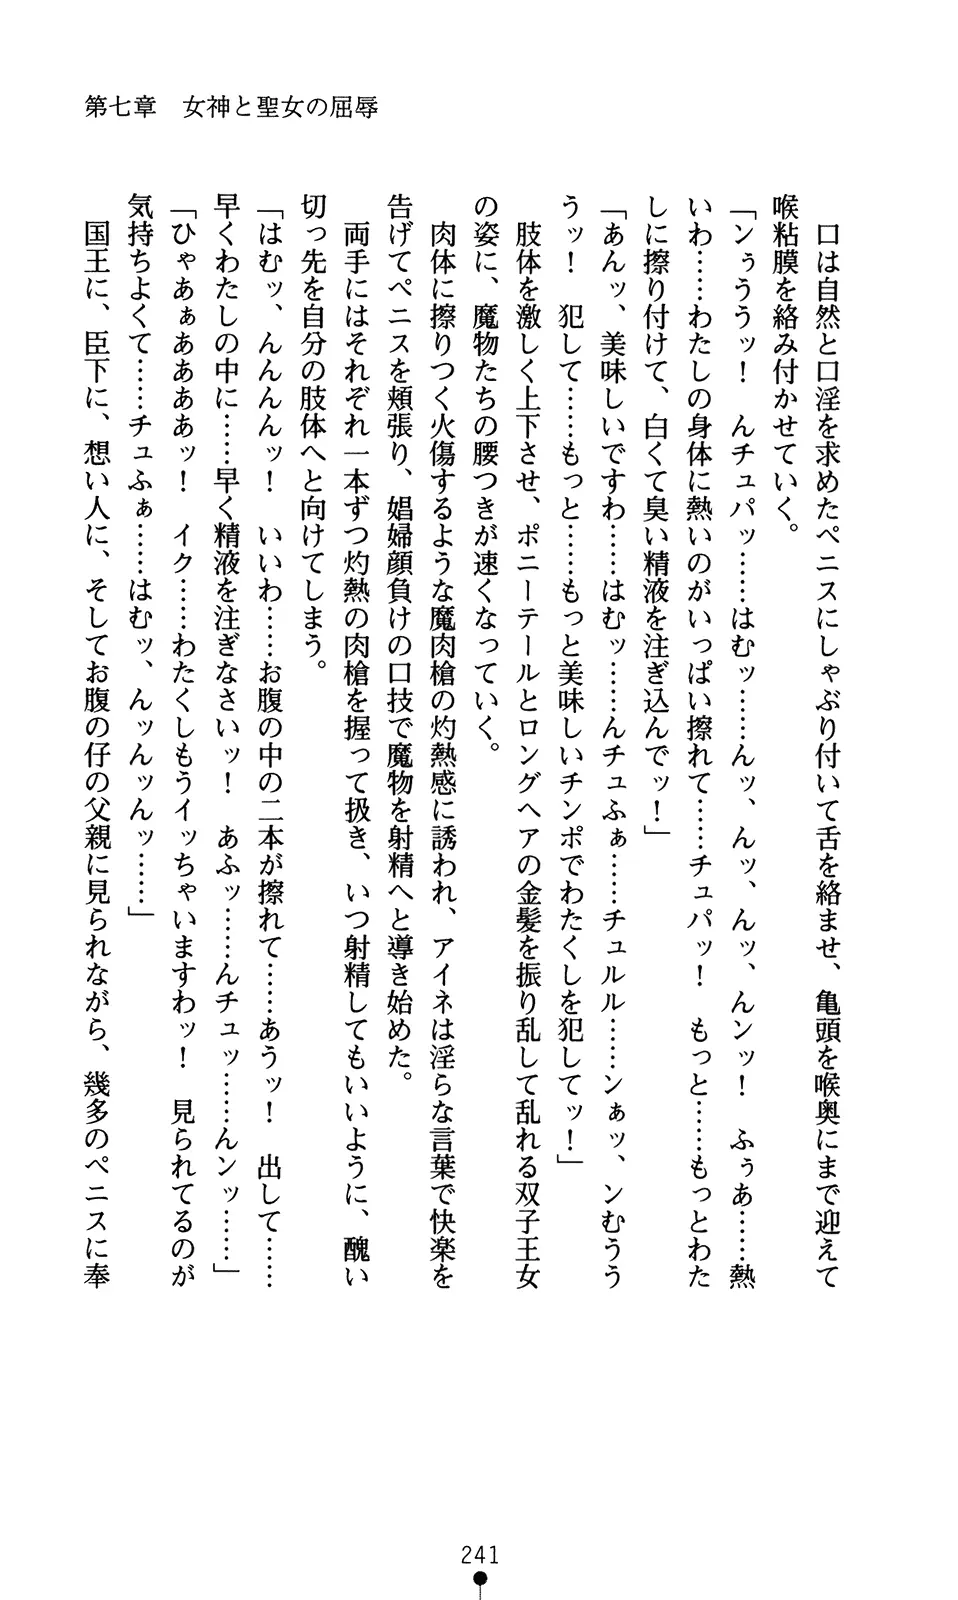 第七章　女神と聖女の屈辱
　口は自然と口淫を求めたペニスにしゃぶり付いて舌を絡ませ、亀頭を喉奥にまで迎えて
喉粘膜を絡み付かせていく。
「ンぅううッ！　んチュパッ……はむッ……んッ、んッ、んッ、んンッ！　ふぅあ……熱
いわ……わたしの身体に熱いのがいっぱい擦れて……チュパッ！　もっと……もっとわた
しに擦り付けて、白くて臭い精液を注ぎ込んでッ！」
「あんッ、美味しいですわ……はむッ……んチュふぁ……チュルル……ンぁッ、ンむうう
うッ！　犯して……もっと……もっと美味しいチンポでわたくしを犯してッ！」
　肢体を激しく上下させ、ポニーテールとロングヘアの金髪を振り乱して乱れる双子王女
の姿に、魔物たちの腰つきが速くなっていく。
　肉体に擦りつく火傷するような魔肉槍の灼熱感に誘われ、アイネは淫らな言葉で快楽を
告げてペニスを頬張り、娼婦顔負けの口技で魔物を射精へと導き始めた。
　両手にはそれぞれ一本ずつ灼熱の肉槍を握って扱き、いつ射精してもいいように、醜い
切っ先を自分の肢体へと向けてしまう。
「はむッ、んんんんッ！　いいわ……お腹の中の二本が擦れて……あうッ！　出して……
早くわたしの中に……早く精液を注ぎなさいッ！　あふッ……んチュッ……んンッ……」
「ひゃあぁああああッ！　イク……わたくしもうイッちゃいますわッ！　見られてるのが
気持ちよくて……チュふぁ……はむッ、んッんッんッ……」
　国王に、臣下に、想い人に、そしてお腹の仔の父親に見られながら、幾多のペニスに奉
241